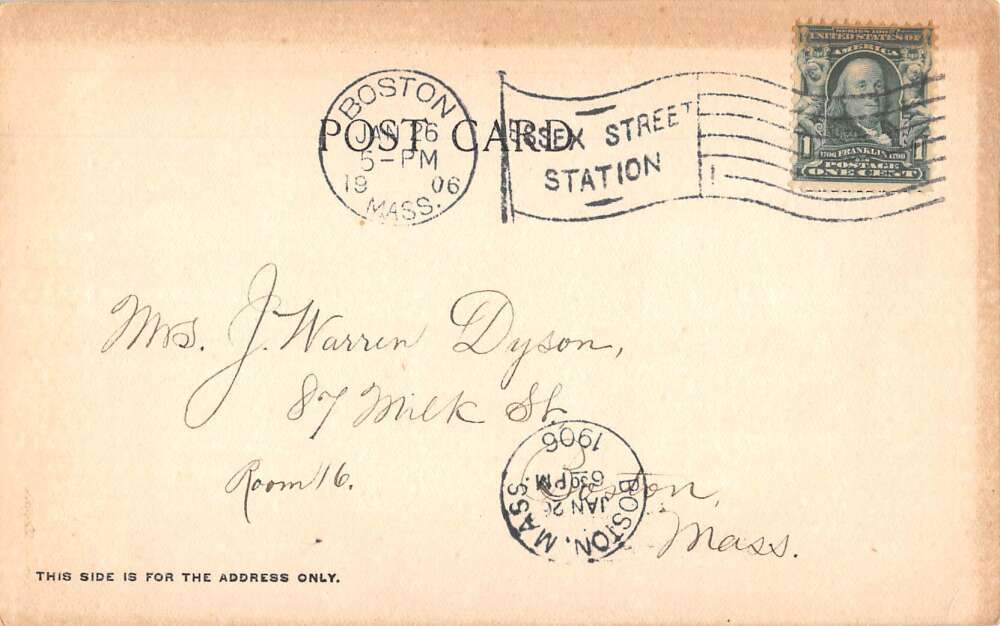 SERIES 1902
UNITED STATES OF
AMERICA
1 1706 FRANKLIN 1790 1
POSTAGE
ONE CENT
BOSTON
JAN 26
5-PM
19 06
MASS.
POST CARD
ESSEX STREET
STATION
Mrs. J. Warren Dyson,
87 Milk St.
Room 16.
Boston,
Mass.
BOSTON, MASS.
JAN 26
630PM
1906
THIS SIDE IS FOR THE ADDRESS ONLY.